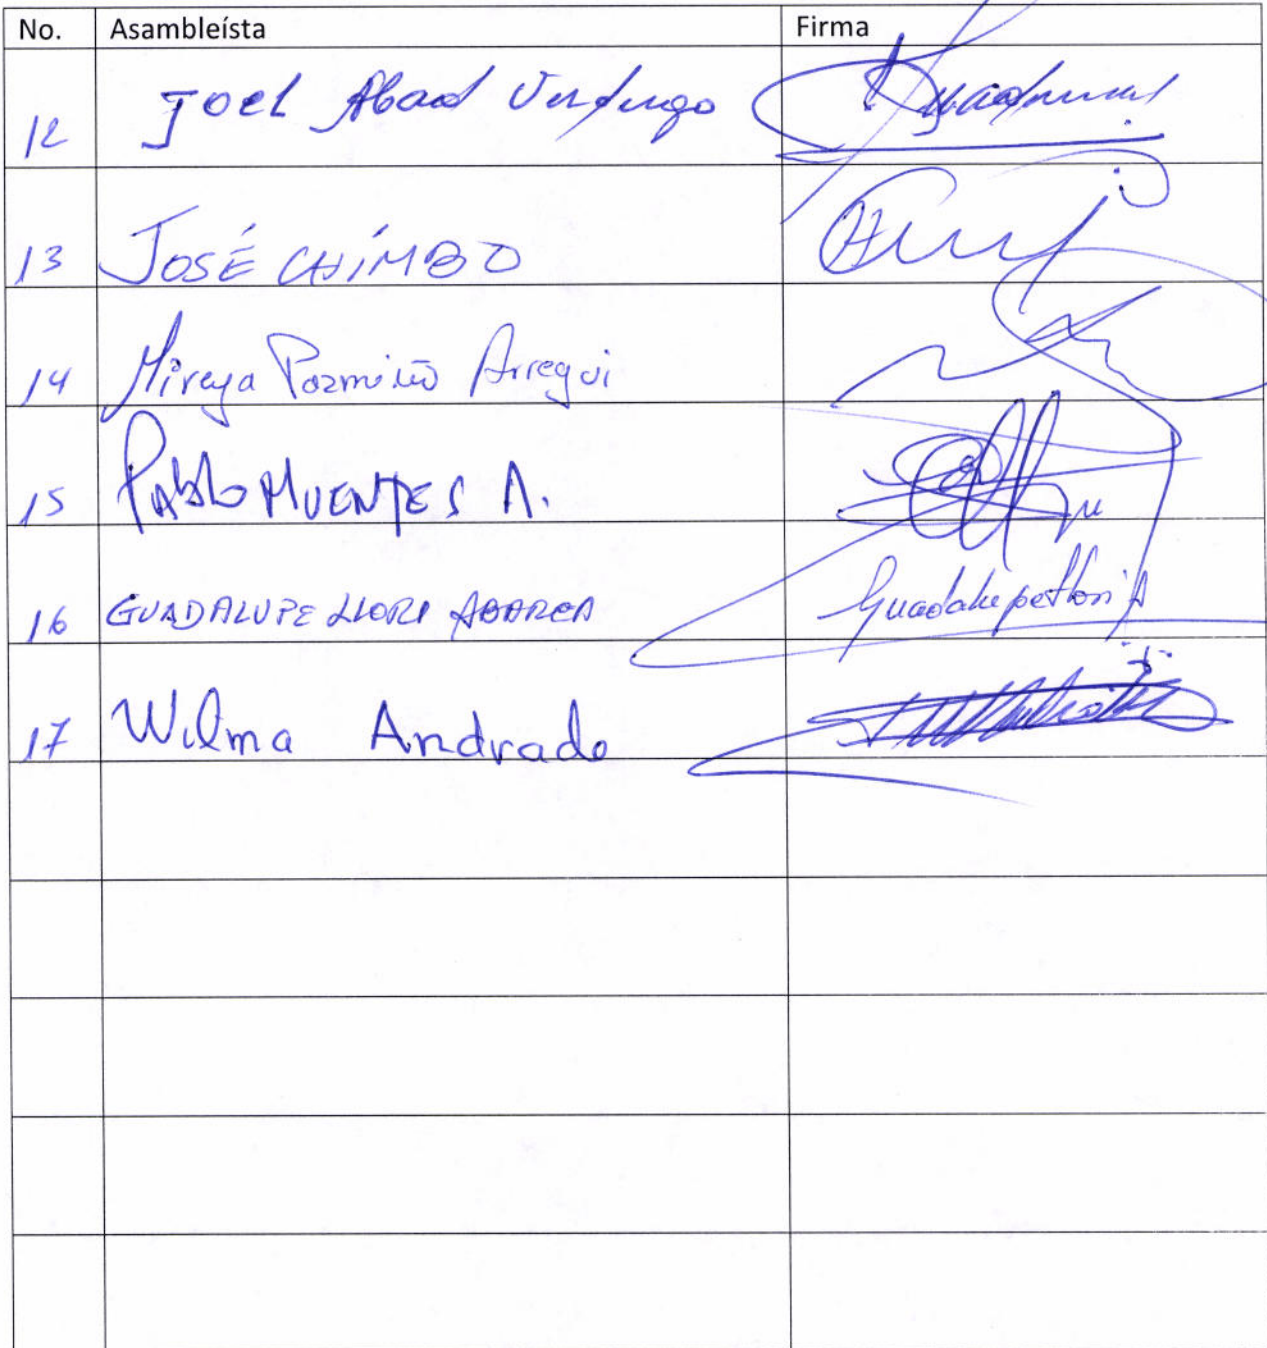 No. Asambleísta Firma
12 Joel Abad Verdugo
13 JOSÉ CHÍMBO
14 Mireya Pazmiño Arregui
15 PABLO MUENTES A.
16 GUADALUPE LLORI ABARCA Guadalupe Llori A
17 Wilma Andrade